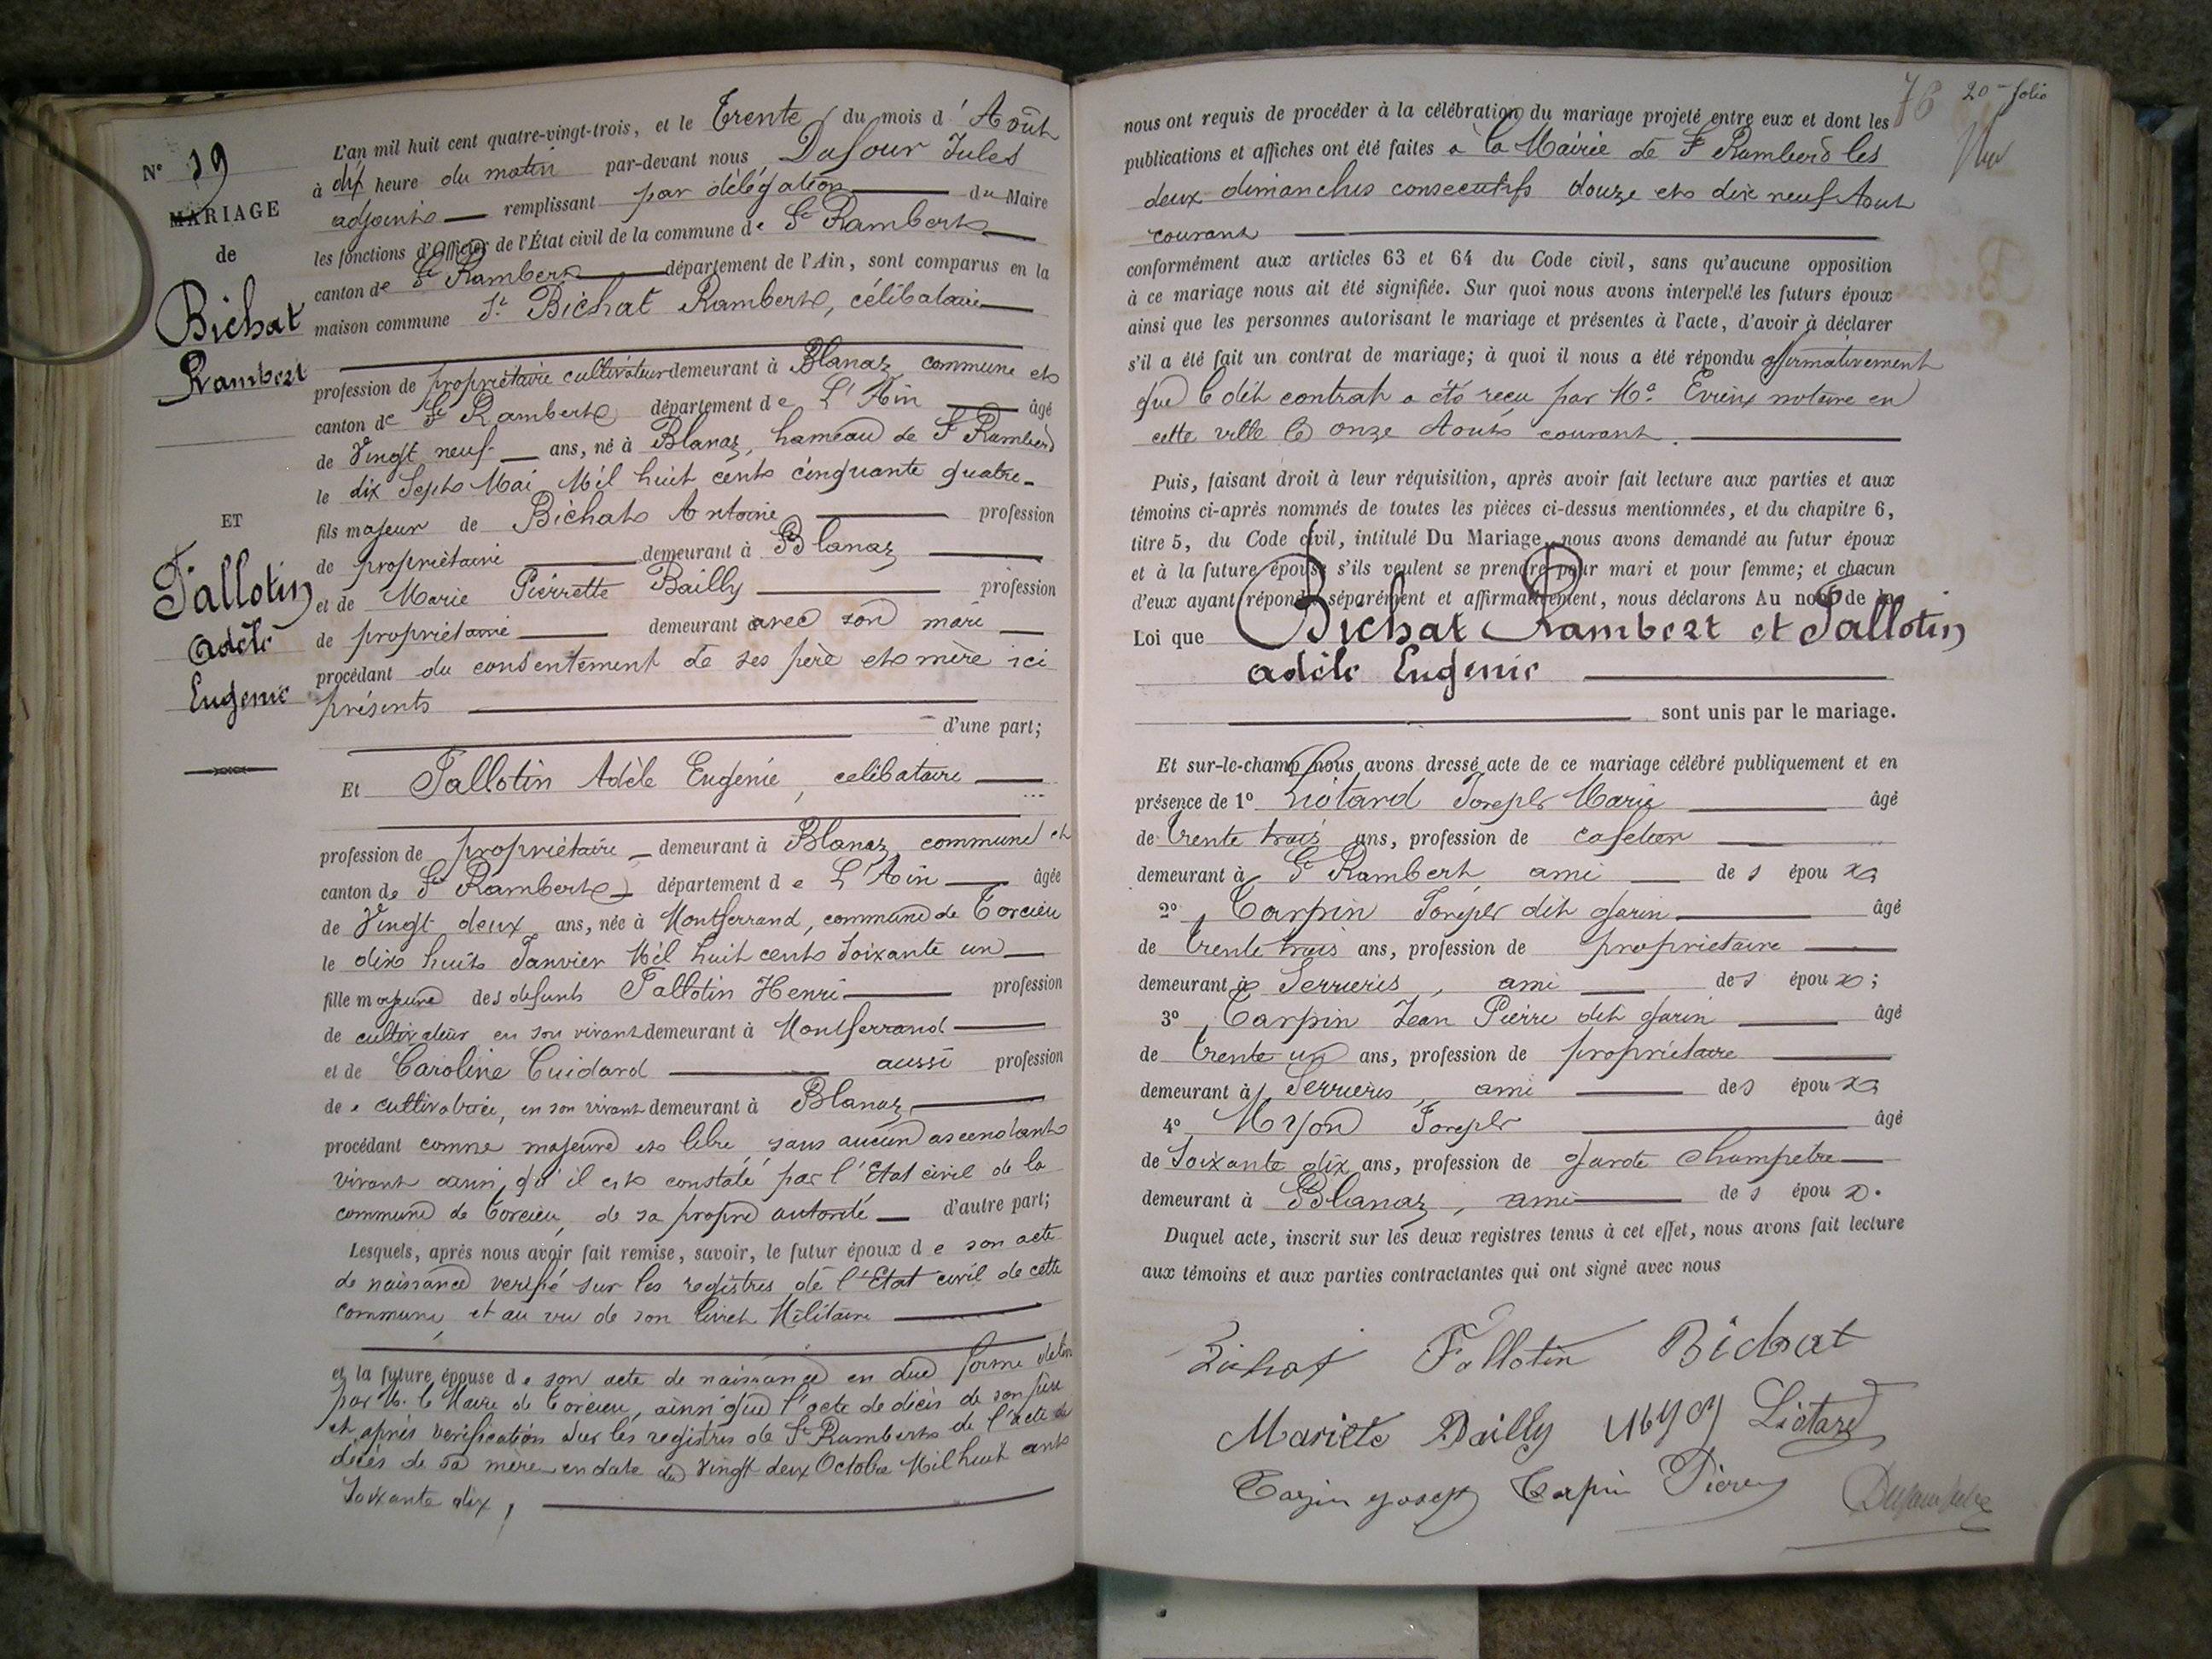 N° 19
MARIAGE
de
Bichat
Rambert
ET
Fallotin
Adèle
Eugenie
L'an mil huit cent quatre-vingt-trois, et le Trente du mois d'Août
à dix heure du matin par-devant nous Dufour Jules
adjoint remplissant par délégation du Maire
les fonctions d'Officier de l'État civil de la commune de St Rambert
canton de St Rambert département de l'Ain, sont comparus en la
maison commune Sr Bichat Rambert, célibataire
profession de propriétaire cultivateur demeurant à Blanaz commune et
canton de St Rambert département de L'Ain âgé
de Vingt neuf ans, né à Blanaz, hameau de St Rambert
le dix Sept Mai Mil huit cent cinquante quatre
fils majeur de Bichat Antoine profession
de propriétaire demeurant à Blanaz
et de Marie Pierrette Bailly profession
de propriétaire demeurant avec son mari
procédant du consentement de ses père et mère ici
présents
d'une part;
Et Fallotin Adèle Eugenie, celibataire
profession de propriétaire demeurant à Blanaz commune et
canton de St Rambert département de L'Ain âgée
de Vingt deux ans, née à Montferrand, commune de Torcieu
le dix huit Janvier Mil huit cent soixante un
fille majeure des defunts Fallotin Henri profession
de cultivateur en son vivant demeurant à Montferrand
et de Caroline Cuidard aussi profession
de cultivatrice, en son vivant demeurant à Blanaz
procédant comme majeure et libre, sans aucun ascendant
vivant ainsi qu'il est constaté par l'Etat civil de la
commune de Torcieu, de sa propre autorité d'autre part;
Lesquels, après nous avoir fait remise, savoir, le futur époux de son acte
de naissance verifié sur les registres de l'Etat civil de cette
commune, et au vu de son livret Militaire
et la future épouse de son acte de naissance en due forme
par Mr le Maire de Torcieu, ainsi que l'acte de décès de son père
et après verification sur les registres de St Rambert de l'acte de
décès de sa mère en date du Vingt deux Octobre Mil huit cent
Soixante dix,
76 20me folio
nous ont requis de procéder à la célébration du mariage projeté entre eux et dont les
publications et affiches ont été faites à la Mairie de St Rambert les
deux dimanches consecutifs douze et dix neuf Aout
courant
conformément aux articles 63 et 64 du Code civil, sans qu'aucune opposition
à ce mariage nous ait été signifiée. Sur quoi nous avons interpellé les futurs époux
ainsi que les personnes autorisant le mariage et présentes à l'acte, d'avoir à déclarer
s'il a été fait un contrat de mariage; à quoi il nous a été répondu affirmativement
que le dit contrat a été reçu par Me Evieux notaire en
cette ville le onze Août courant.
Puis, faisant droit à leur réquisition, après avoir fait lecture aux parties et aux
témoins ci-après nommés de toutes les pièces ci-dessus mentionnées, et du chapitre 6,
titre 5, du Code civil, intitulé Du Mariage, nous avons demandé au futur époux
et à la future épouse s'ils veulent se prendre pour mari et pour femme; et chacun
d'eux ayant répondu séparément et affirmativement, nous déclarons Au nom de la
Loi que Bichat Rambert et Fallotin
Adèle Eugenie
sont unis par le mariage.
Et sur-le-champ nous avons dressé acte de ce mariage célébré publiquement et en
présence de 1° Liotard Joseph Marie âgé
de trente trois ans, profession de cafetier
demeurant à St Rambert ami des époux
2° Carpin Joseph dit Garin âgé
de trente trois ans, profession de proprietaire
demeurant à Serrieres, ami des époux;
3° Carpin Jean Pierre dit Garin âgé
de trente un ans, profession de propriétaire
demeurant à Serrieres, ami des époux
4° Myon Joseph âgé
de Soixante dix ans, profession de garde champetre
demeurant à Blanaz, ami des époux.
Duquel acte, inscrit sur les deux registres tenus à cet effet, nous avons fait lecture
aux témoins et aux parties contractantes qui ont signé avec nous
Bichat Fallotin Bichat
Mariete Bailly Myon Liotard
Carpin Joseph Carpin Pierre